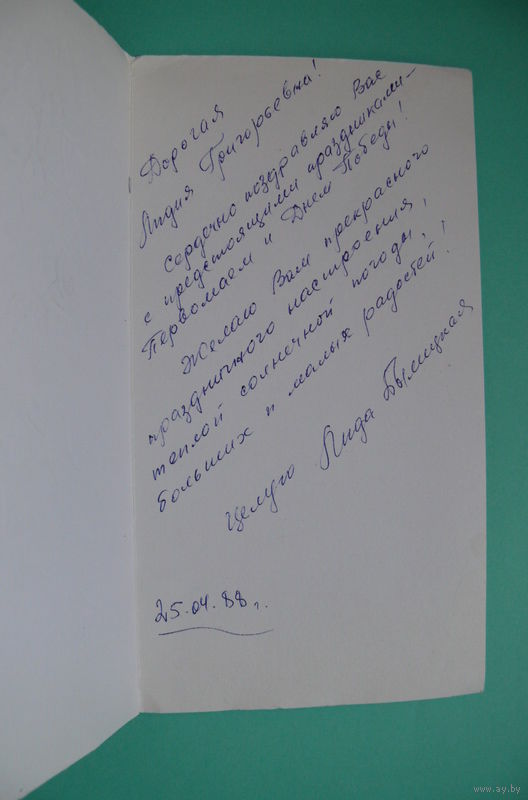 Дорогая
Лидия Григорьевна!
Сердечно поздравляю Вас
с предстоящими праздниками –
Первомаем и Днем Победы!
Желаю Вам прекрасного
праздничного настроения,
теплой солнечной погоды,
больших и малых радостей!
Целую Лида Былицкая
25.04.88 г.
www.ay.by